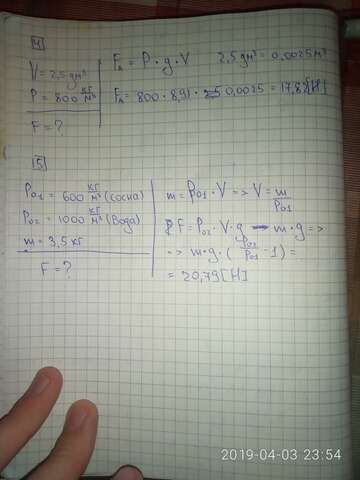 4
V = 2,5 дм³
P = 800 кг/м³
F = ?
Fₐ = P · g · V    2,5 дм³ = 0,0025 м³
Fₐ = 800 · 8,91 · 0,0025 = 17,82 [H]
5
P₀₁ = 600 кг/м³ (сосна)
P₀₂ = 1000 кг/м³ (Вода)
m = 3,5 кг
F = ?
m = P₀₁ · V => V = m/P₀₁
F = P₀₂ · V · g - m · g =>
=> m · g · (P₀₂/P₀₁ - 1) =
= 20,79 [H]
2019-04-03 23:54